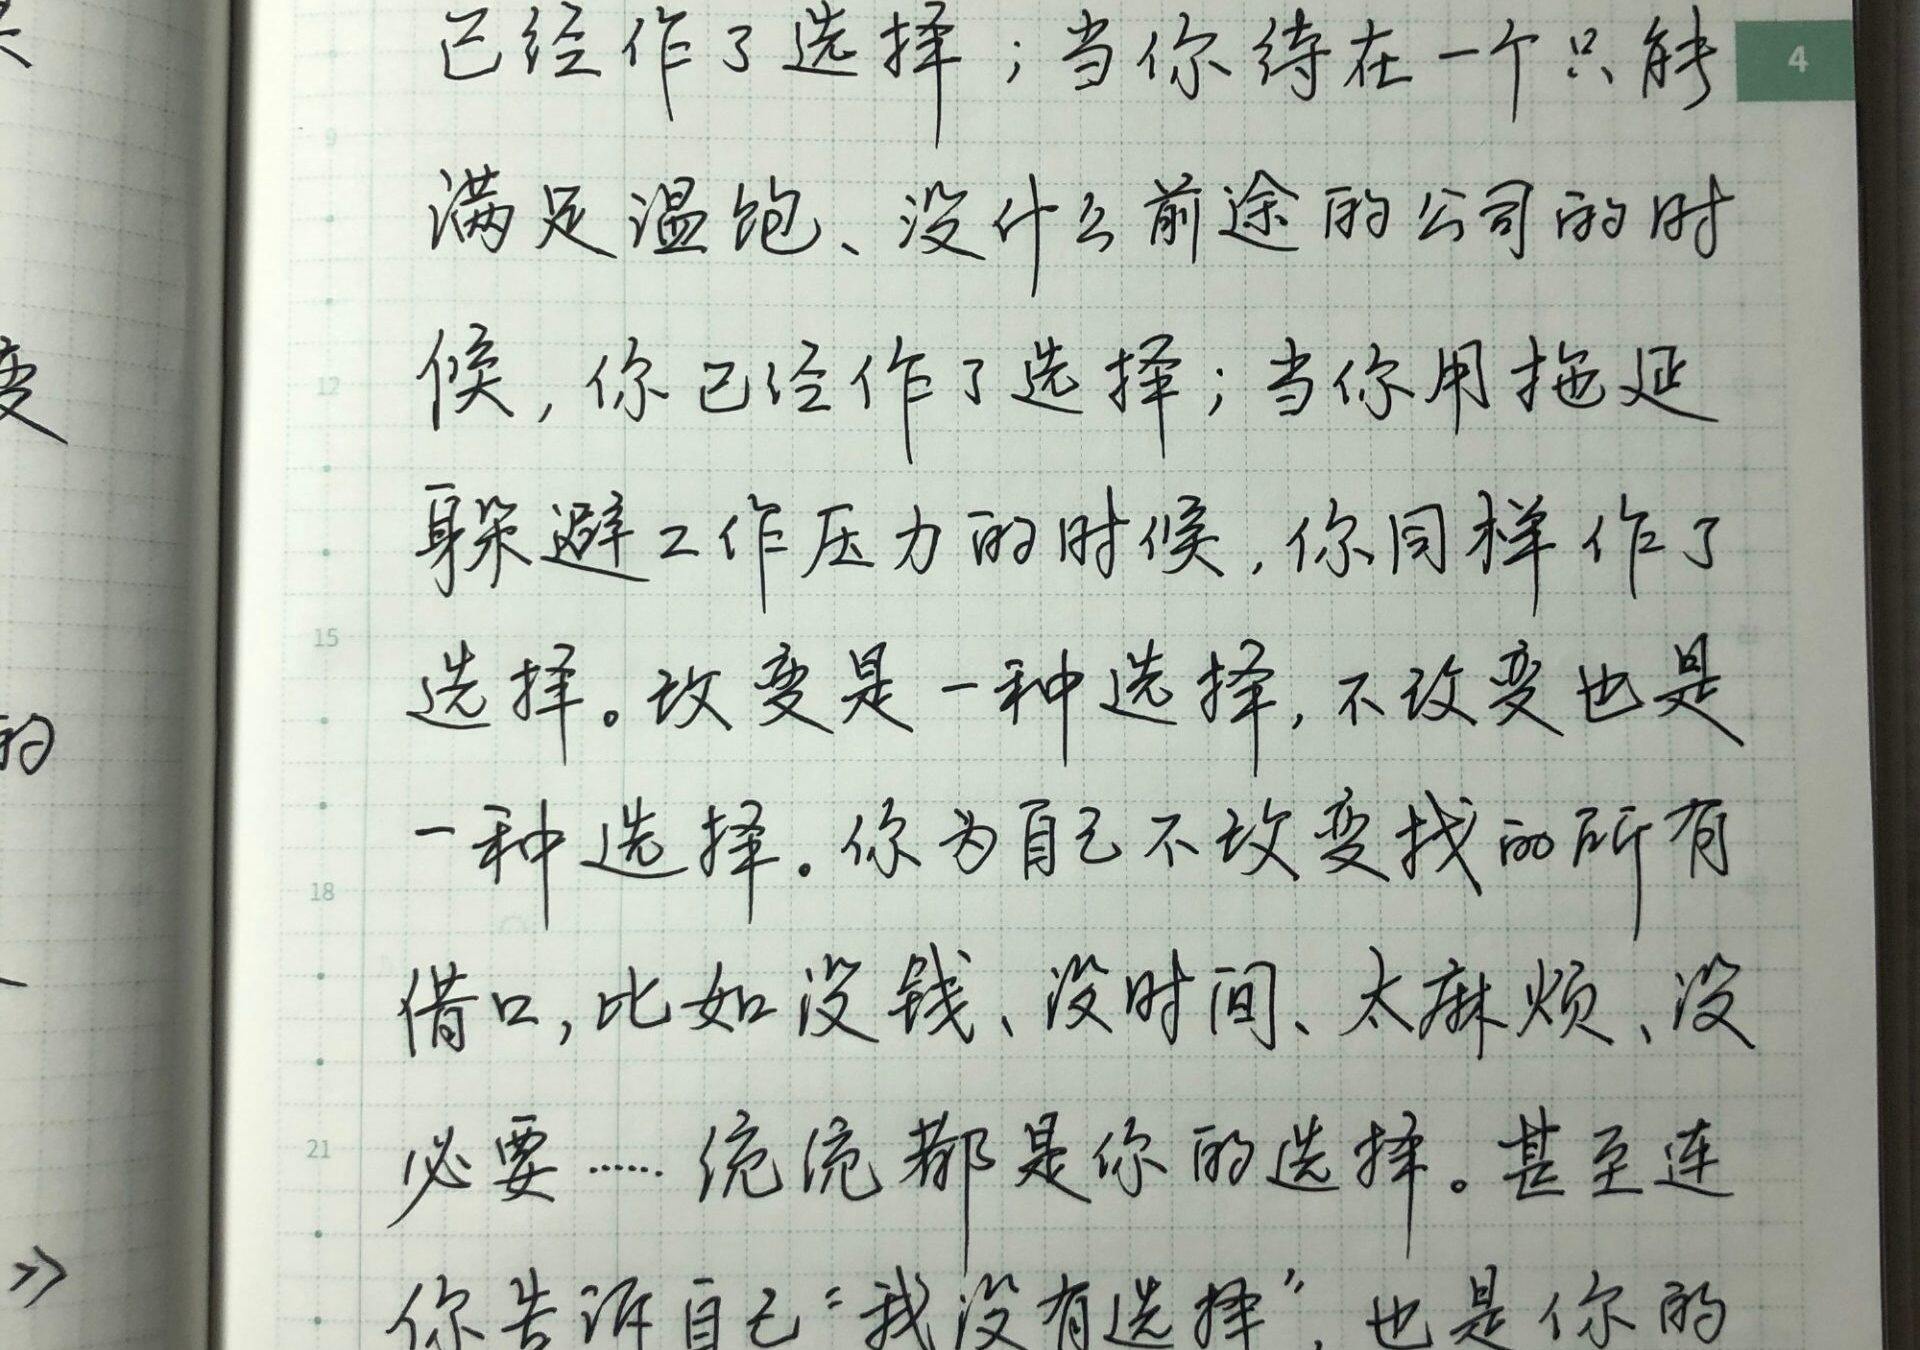 已经作了选择；当你待在一个只能
4
9
满足温饱、没什么前途的公司的时
12
候，你已经作了选择；当你用拖延
躲避工作压力的时候，你同样作了
15
选择。改变是一种选择，不改变也是
一种选择。你为自己不改变找的所有
18
借口，比如没钱、没时间、太麻烦、没
必要……统统都是你的选择。甚至连
21
你告诉自己“我没有选择”，也是你的
变
的
》